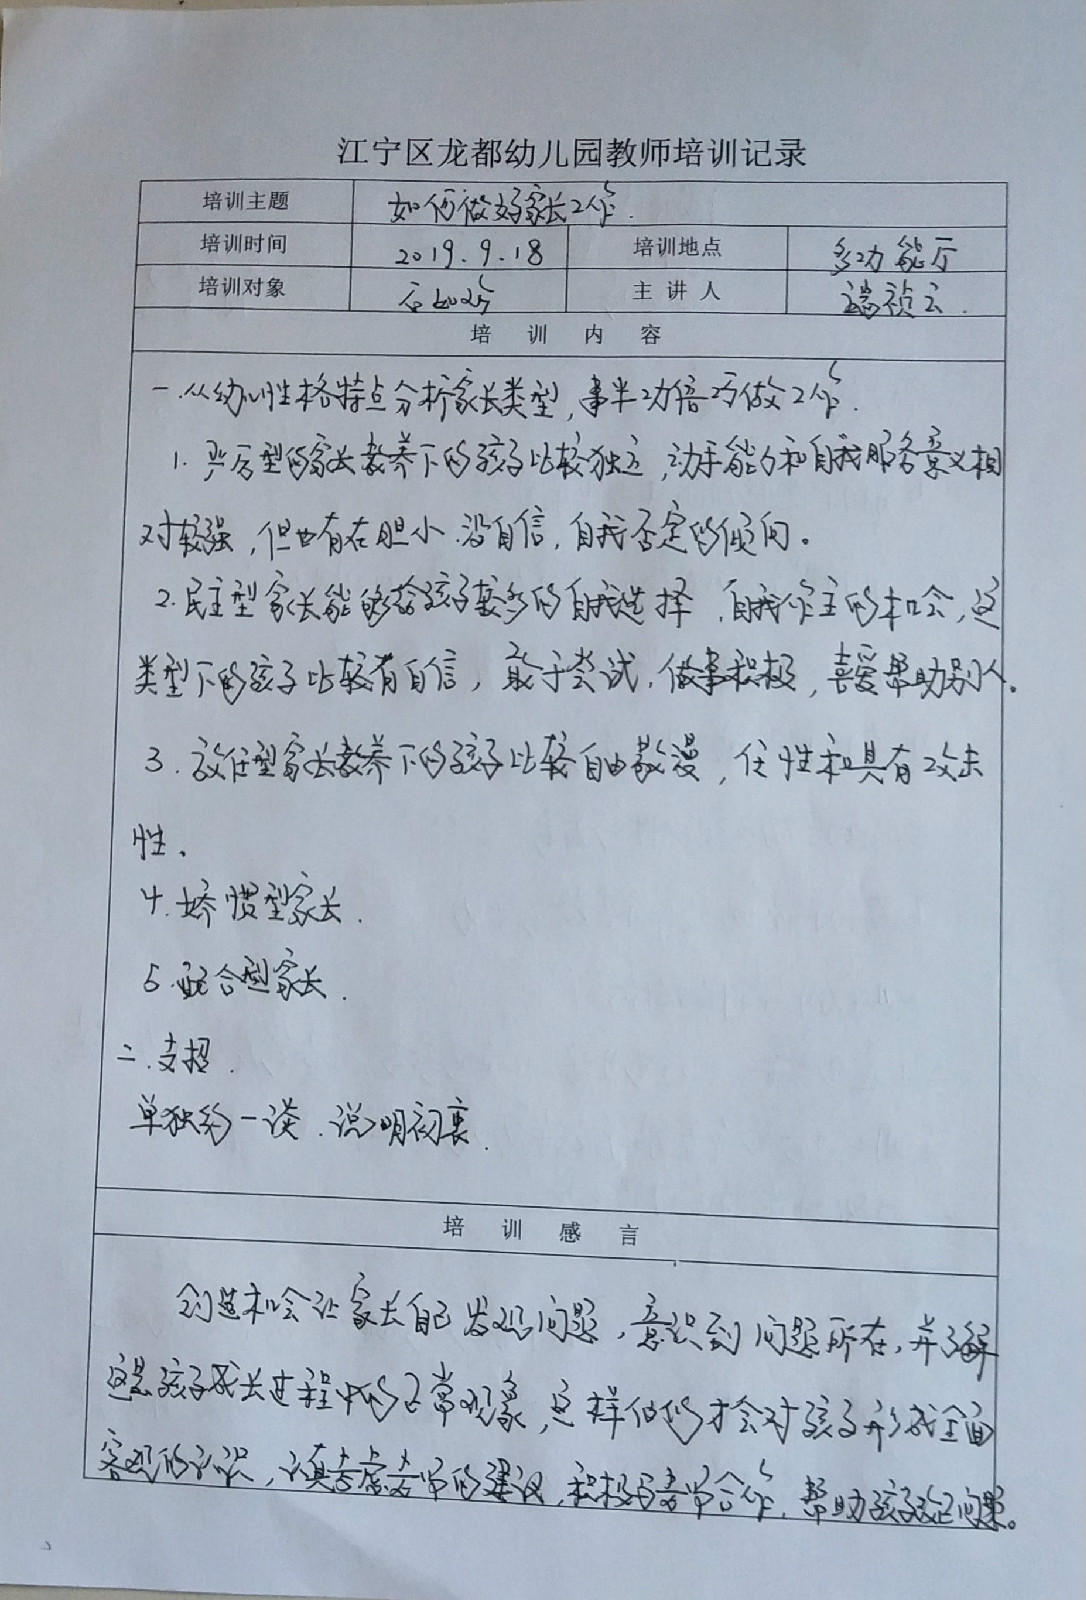 江宁区龙都幼儿园教师培训记录
培训主题 如何做好家长工作.
培训时间 2019.9.18 培训地点 多功能厅
培训对象 主讲人 端祯云.
培训内容
一.从幼儿性格特点分析家长类型,事半功倍巧做工作.
1. 严厉型的家长教养下的孩子比较独立,动手能力和自我服务意义相
对较强,但也有在胆小.没自信,自我否定的倾向。
2.民主型家长能够给孩子更多的自我选择,自我作主的机会,这
类型下的孩子比较有自信,敢于尝试.做事积极,喜爱帮助别人。
3.放任型家长教养下的孩子比较自由散漫,任性和具有攻击
性、
4.娇惯型家长.
5.配合型家长.
二.支招.
单独约一谈.说明初衷.
培训感言
创造机会让家长自己发现问题,意识到问题所在,并了解
这是孩子成长过程中的正常现象,这样他们才会对孩子形成全面
客观的认识,认真考虑老师的建议,积极与老师合作,帮助孩子改正问题。